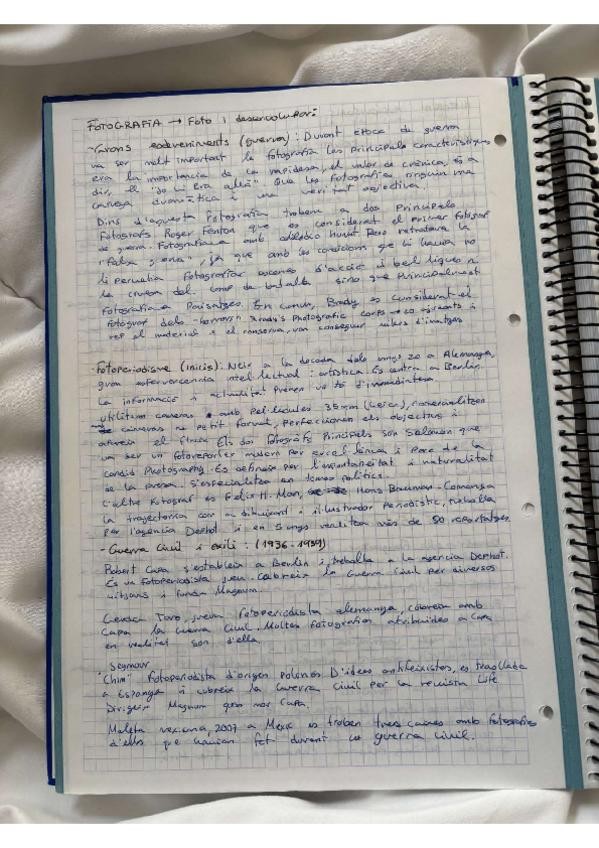 FOTOGRAFIA → Foto i desenvolupar:
-Grans esdeveniments (guerra): Durant època de guerra
va ser molt important la fotografia les principals característiques
era la importància de la rapidesa, el valor de crònica, és a
dir, el "jo hi era allà". Que les fotografies tinguin una
càrrega dramàtica i una veritat objectiva.
Dins d'aquesta fotografia trobem a dos principals
fotògrafs Roger Fenton que es considerat el primer fotògraf
de guerra. Fotografiava amb col·lodió humit Però retratava la
"falsa guerra", ja que amb les condicions que hi havia no
li permetia fotografiar escenes d'acció i bel·liques ni
la cruesa del camp de batalla sinó que principalment
fotografiava Paisatges. En canvi, Brady es considerat el
fotògraf dels horrors. Brady's Photografic corps →
rep el material i el conserva, van conseguir milers d'imatges
-Fotoperiodisme (inicis): Neix a la dècada dels anys 20 a Alemanya,
gran efervescencia intel·lectual i artística. Es centra a Berlín.
La informació i actualitat prenen un to d'immediatesa
utilitzen càmeres amb Pel·licules 35mm (Leica), comercialitzen
càmeres de petit format, perfeccionen els objectius i
apareix el flaix. Els dos fotògrafs principals són Salomon que
va ser un fotoreporter modern per excel·lència i Pare de la
candid Photography. Es defineix per l'espontaneïtat i naturalitat
de la presa. S'especialitza en temes polítics.
L'altre fotògraf és Felix H. Man, Hans Bauman - Comença
la trajectòria com a dibuixant i il·lustrador Periodístic, treballa
per l'agència Dephot i en 5 anys realitza més de 80 reportatges.
- Guerra Civil i exili: (1936-1939)
Robert Capa s'estableix a Berlín i treballa a la agència Dephot.
És un fotoperiodista jueu. Cobreix la Guerra Civil per diversos
mitjans i funda Magnum.
Gerda Taro, jueva fotoperiodista alemanya, cobreix amb
Capa la Guerra Civil. Moltes fotografies atribuïdes a Capa
en realitat són d'ella
Seymour
"Chim" Fotoperiodista d'origen polonès D'idees antifeixistes, es trasllada
a Espanya i cobreix la Guerra Civil per la revista Life
Dirigeix Magnum quan mor Capa.
Maleta mexicana, 2007 a Mèxic es troben tres caixes amb fotografies
d'ells que havien fet durant la guerra civil.